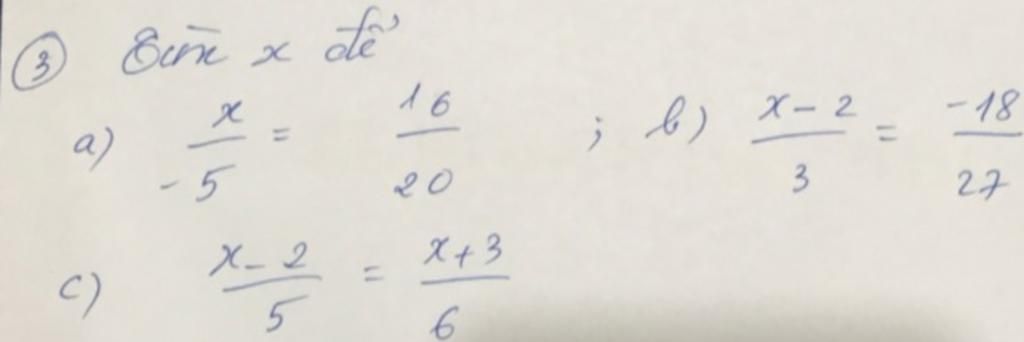 ③ Tìm x để
a) x/-5 = 16/20 ; b) x-2/3 = -18/27
c) x-2/5 = x+3/6